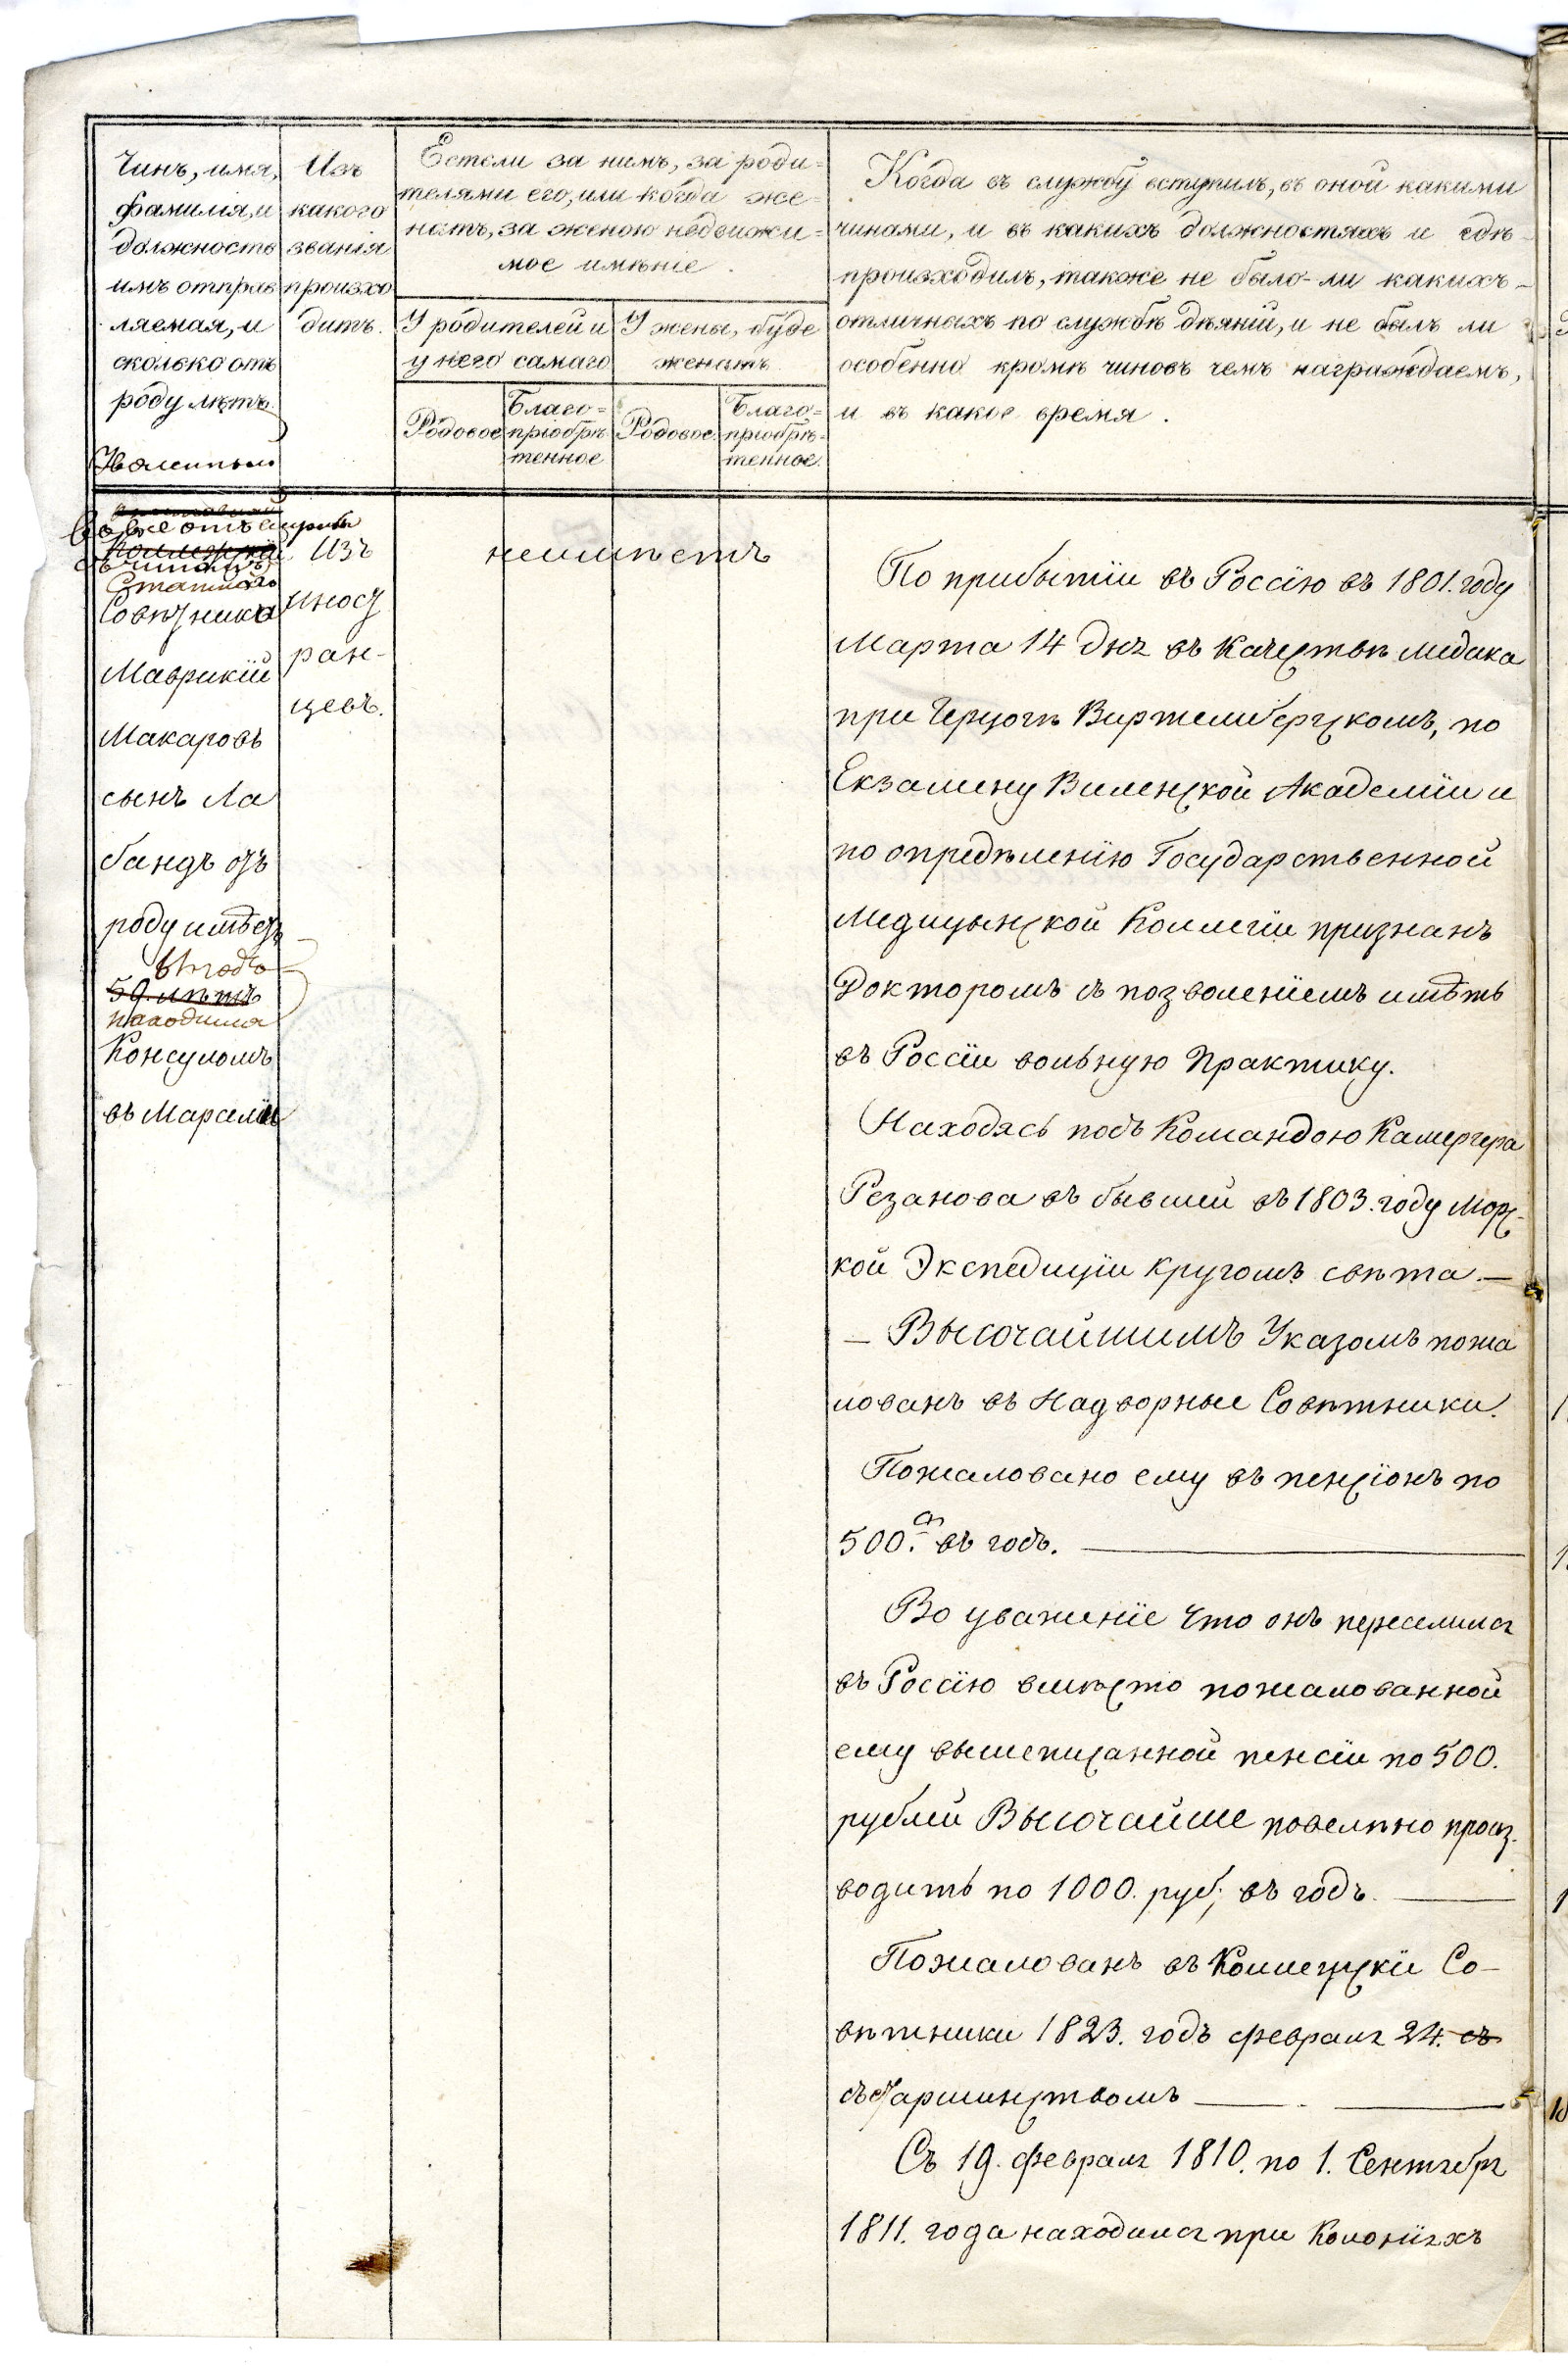 Чинъ, имя,
фамилія, и
должность
имъ отправ
ляемая, и
сколько отъ
роду лѣтъ.
Изъ
какого
званія
произхо
дитъ.
Естьли за нимъ, за роди=
телями его, или когда же=
натъ, за женою недвижи=
мое имѣніе.
У родителей и
у него самаго
У жены, буде
женатъ
Родовое
Благо=
пріобрѣ
тенное
Родовое
Благо=
пріобрѣ=
тенное.
Когда въ службу вступилъ, въ оной какими
чинами, и въ какихъ должностяхъ и гдѣ
произходилъ, также не было-ли какихъ
отличныхъ по службѣ дѣяній, и не былъ ли
особенно кромѣ чиновъ чемъ награждаемъ,
и въ какое время.
Уволенный
вовсе отъ службы
съ чиномъ
Статскаго
Совѣтника
Маврикій
Макаровъ
сынъ Ла
бандъ отъ
роду имѣетъ
59. лѣтъ
находился
Консуломъ
въ Марсели
Изъ
иност
ран-
цевъ.
неимѣетъ
По прибытіи въ Россію въ 1801. году
Марта 14 дня въ качествѣ медика
при Герцогѣ Виртембергскомъ, по
Екзамену Виленской Академіи и
по опредѣленію Государственной
Медицынской Коллегіи признанъ
Докторомъ съ позволеніемъ имѣть
въ Россіи вольную практику.
Находясь подъ Командою Камергера
Резанова въ бывшей въ 1803. году морс-
кой Экспедиціи кругомъ свѣта. —
— Высочайшимъ Указомъ пожа
лованъ въ Надворные Совѣтники.
Пожаловано ему въ пенсіонъ по
500. въ годъ. —
Во уваженіе что онъ переселился
въ Россію вмѣсто пожалованной
ему вышеписанной пенсіи по 500.
рублей Высочайше повелѣно произ-
водить по 1000. руб; въ годъ. —
Пожалованъ въ Коллежскіе Со-
вѣтники 1823. годъ февраля 24. съ
съ старшинствомъ — —
Съ 19. февраля 1810. по 1. Сентября
1811. года находился при Колоніяхъ